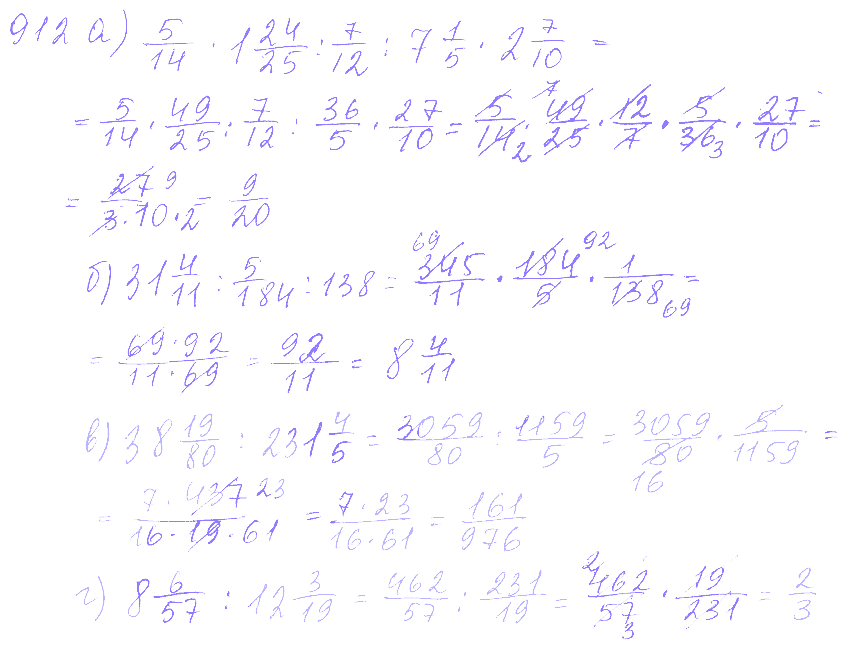 912 а) 5/14 · 1 24/25 : 7/12 : 7 1/5 · 2 7/10 =
= 5/14 · 49/25 : 7/12 : 36/5 · 27/10 = 5/14 2 · 7 49/25 · 12/7 · 5/36 3 · 27/10 =
= 27 9/3·10·2 = 9/20
б) 31 4/11 : 5/184 : 138 = 69 345/11 · 184 92/5 · 1/138 69 =
= 69·92/11·69 = 92/11 = 8 4/11
в) 38 19/80 : 231 4/5 = 3059/80 : 1159/5 = 3059/80 16 · 5/1159 =
= 7·437 23/16·19·61 = 7·23/16·61 = 161/976
г) 8 6/57 : 12 3/19 = 462/57 : 231/19 = 2 462/57 3 · 19/231 = 2/3